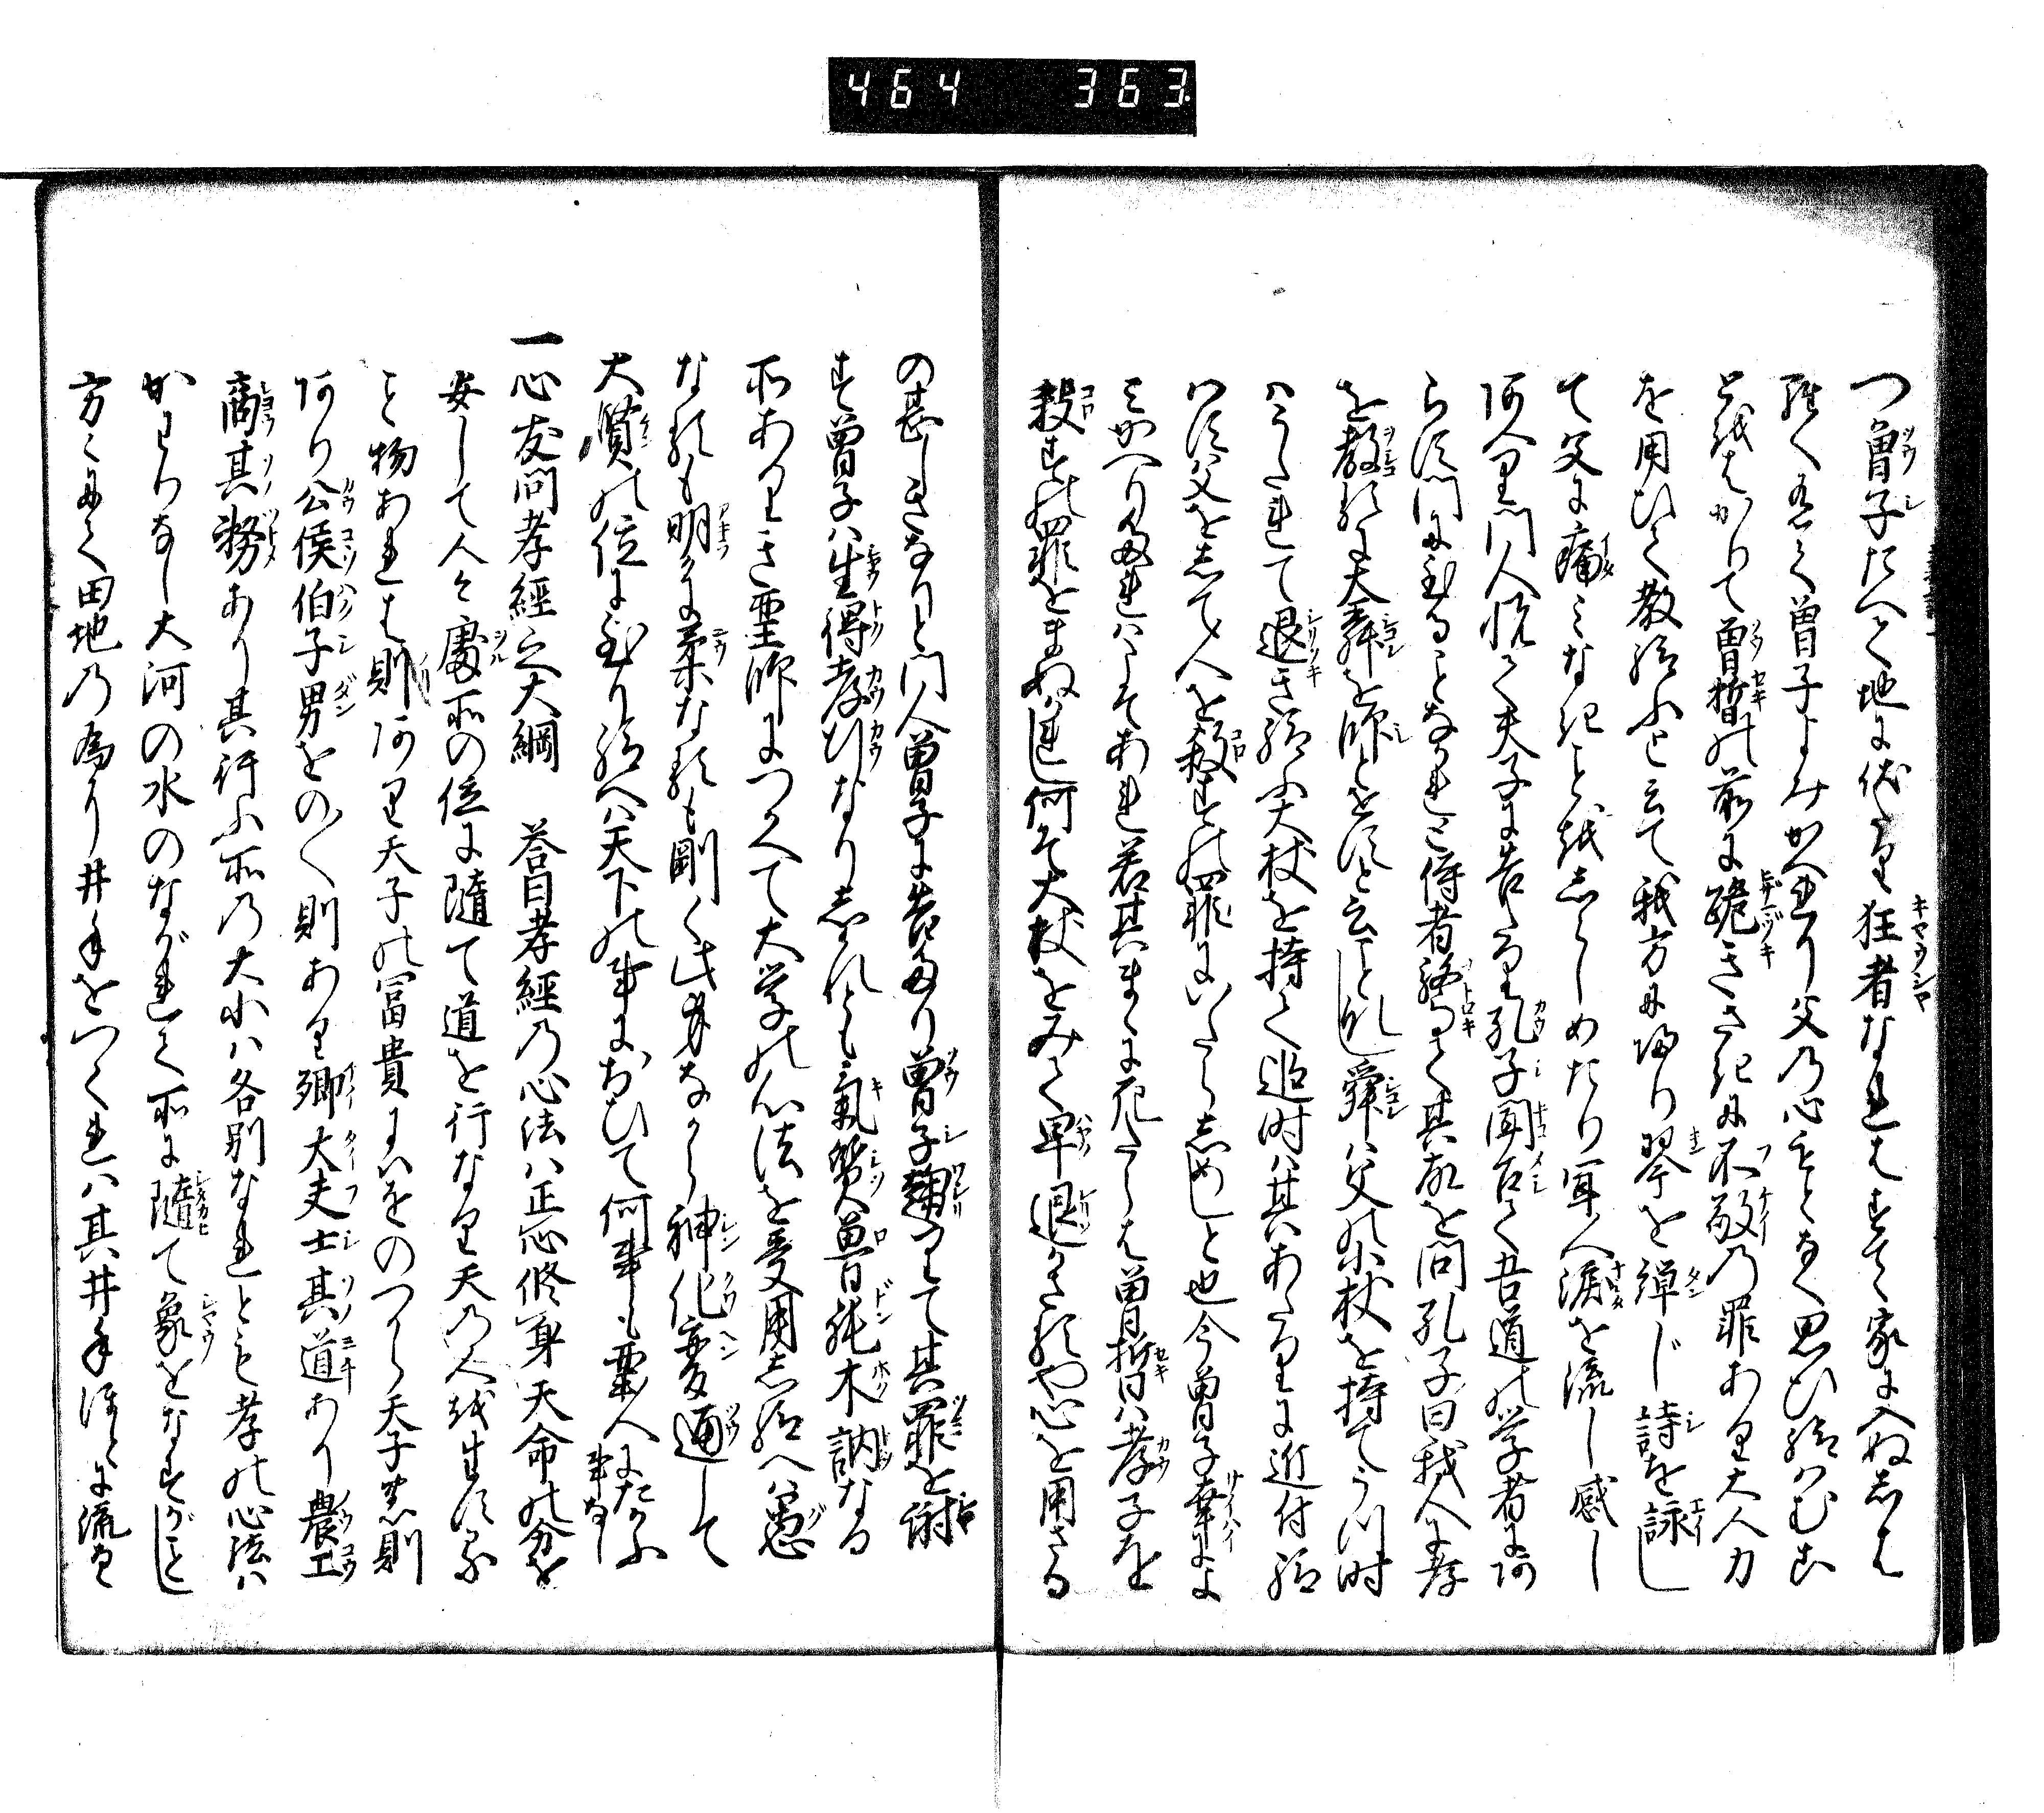 464 363
つ曽子たへて地に伏たり狂者なれはすてゝ家に入ぬしはし
有て曽子よみかへり父の心もとなく思ひ給はむこ
とをはかりて曽晢の前に跪きさきに不敬の罪あり大人力
を用ひて教給ふと云て我方に帰り琴を弾じ詩を詠し
て父に痛みなきことをしらしめたり軍人涙を流し感し
あへり門人悦て夫子に告たり孔子聞召て吾道の学者にあ
らす門に至ることなかれと侍者驚きて其故を問孔子曰我人に孝
を教るに大舜を師とすと云ことし舜は父の小杖を持てうつ時
はうたれて退き給ふ大杖を持て追時は其あたりに近付給
はす父をして人を殺すの罪にいたらしめしと也今曽子幸によ
みかへりぬれはこそあれ若其まゝに死たらは曽晢は孝子を
殺すの罪をまぬかれし何そ大杖をみて早退かさるや心を用さる
の甚しきなりと門人曽子に告たり曽子麹りて其罪を謝
す曽子は生得孝行なりしかれとも氣質魯鈍木訥なる
所ありき聖師につかへて大学の心法を受用し給へは愚
なるも明かに柔なるも剛く此身なから神化変通して
大賢の位に至り給へは天下の事におひて何事も聖人にたかふ事なし
一心友問孝經之大綱 答曰孝經の心法は正心修身天命の分を
安して人々處所の位に隨て道を行なり天の人を生する
と物あれは則あり天子の冨貴にはをのつから天子の則
あり公侯伯子男をの〳〵則あり卿大夫士其道あり農工
商其務あり其行ふ所の大小は各別なれとも孝の心法は
かはりなし大河の水のながれて所に隨て象をなすがことし
方々にて田地の為に井手をつくれは其井手ほとに流る